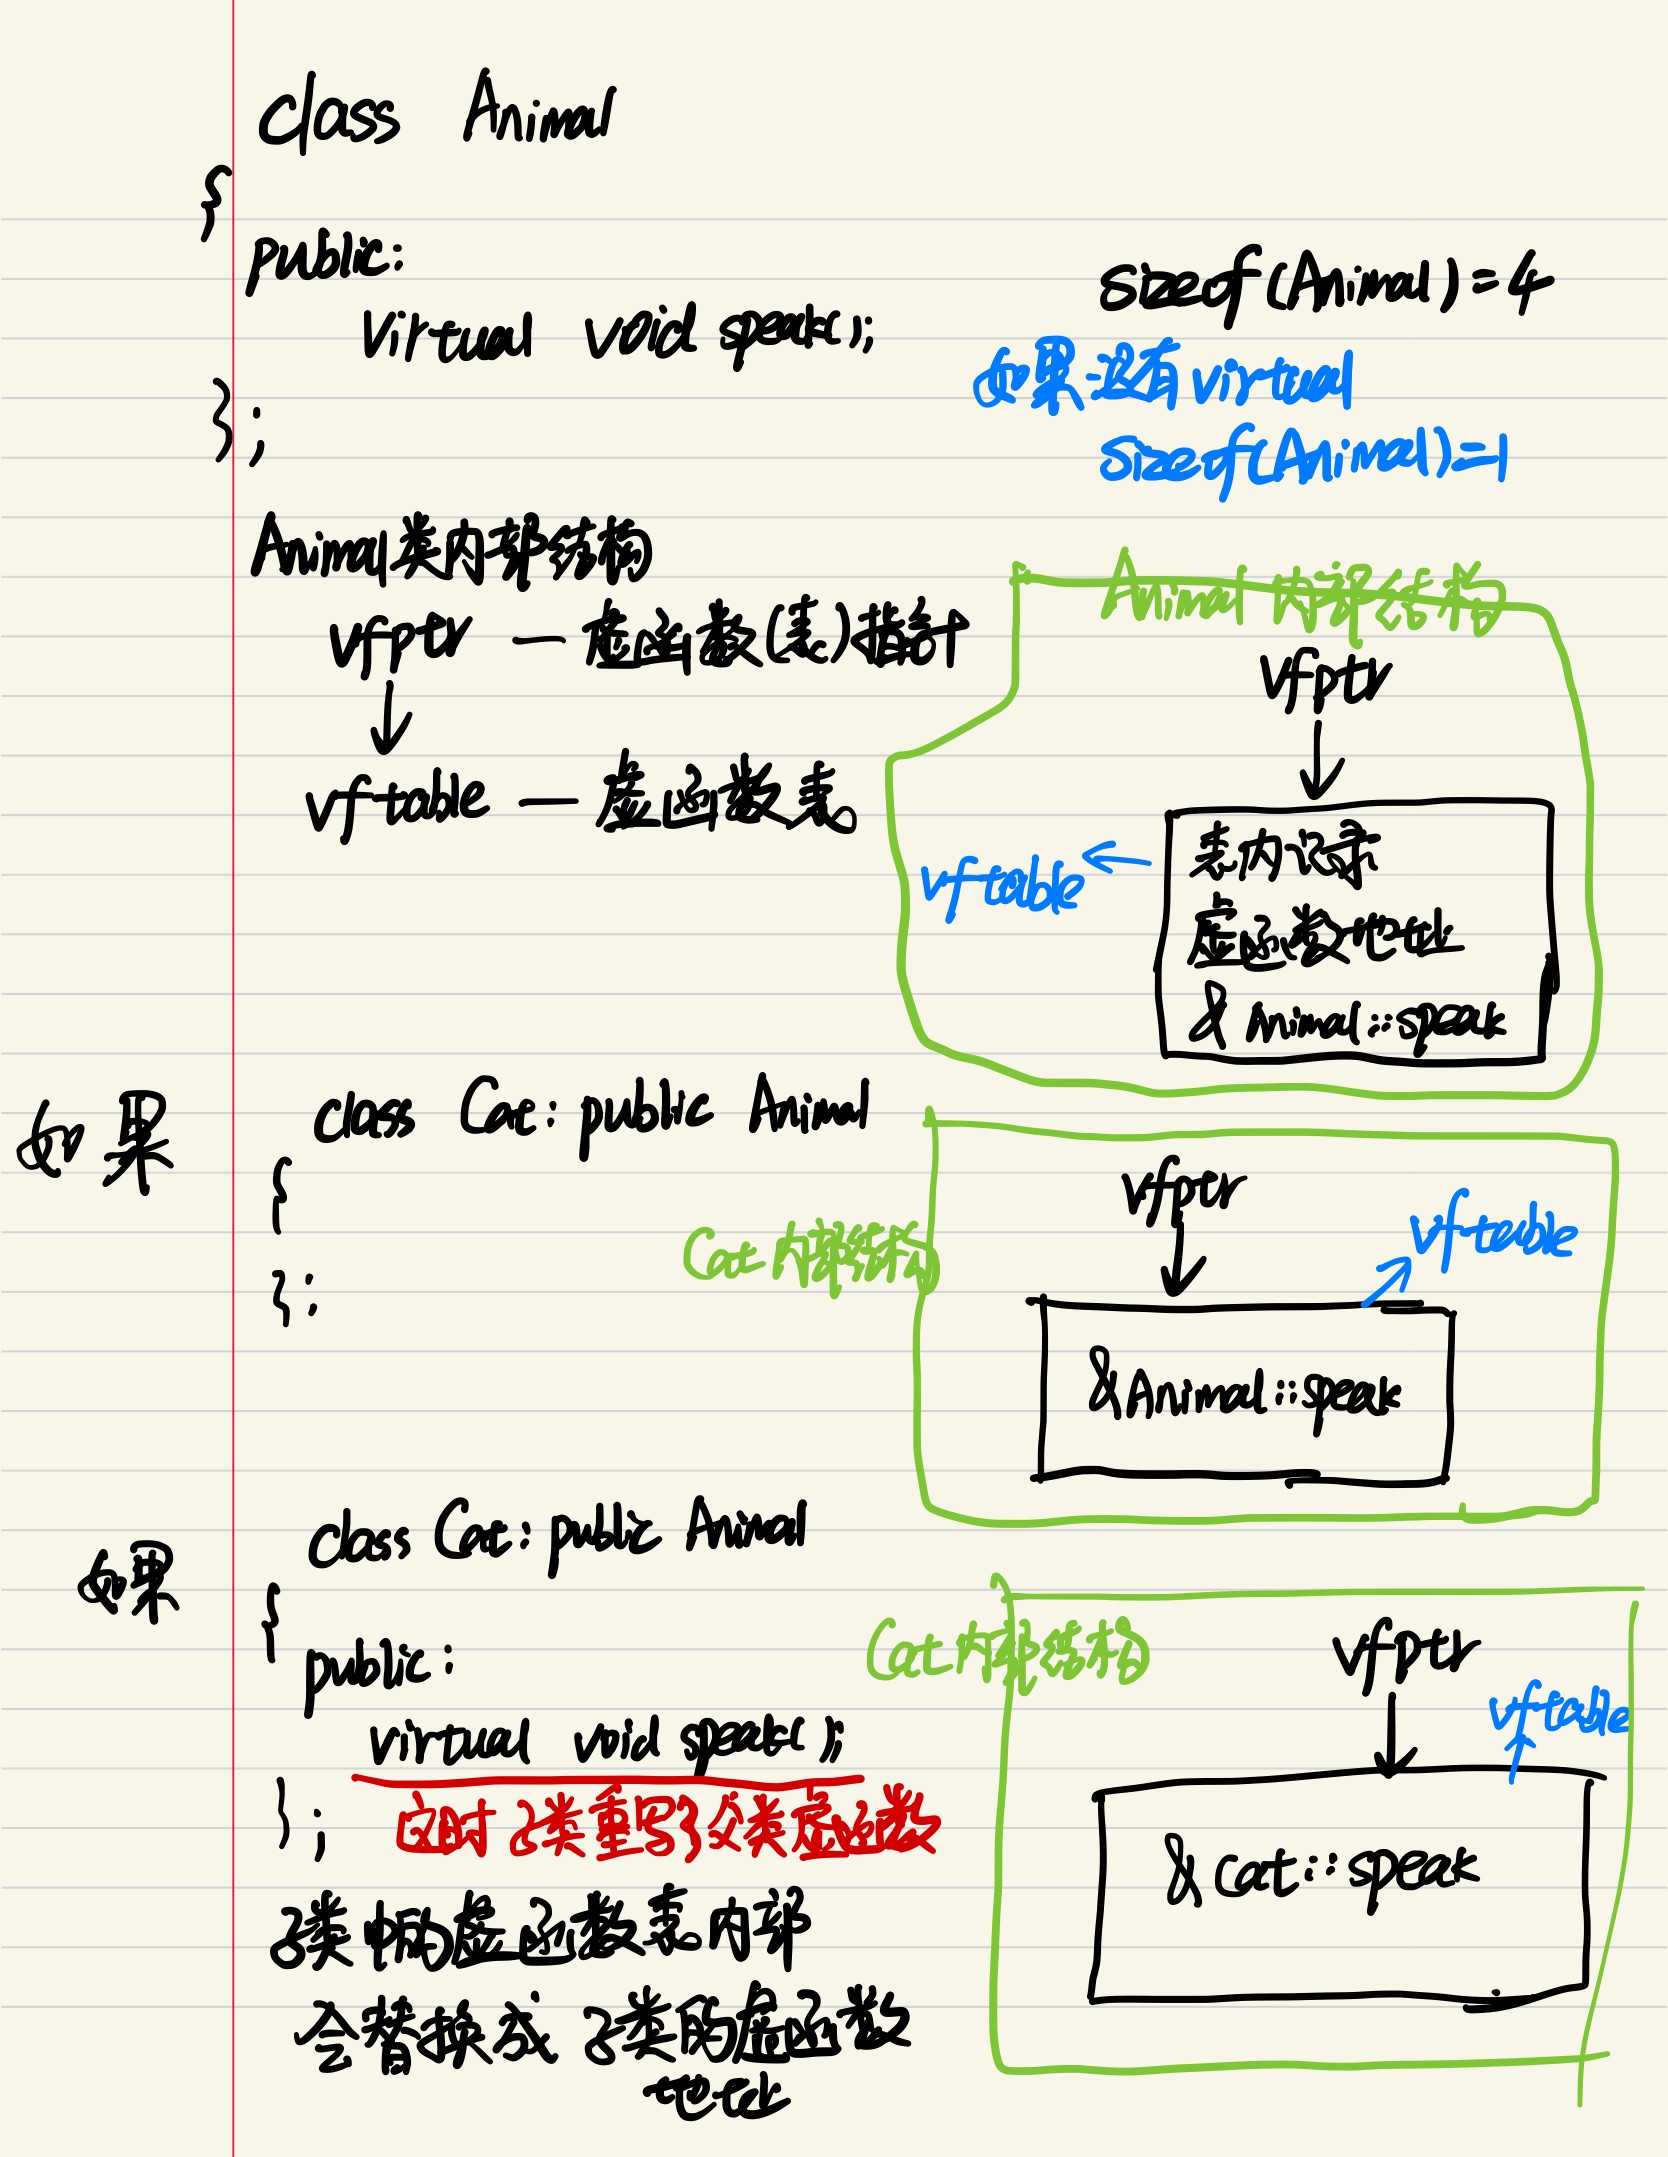 class Animal
{
public:
virtual void speak();
};
sizeof(Animal)=4
如果没有virtual
sizeof(Animal)=1
Animal类内部结构
vfptr — 虚函数(表)指针
vftable — 虚函数表
Animal 内部结构
vfptr
vftable
表内记录
虚函数地址
& Animal::speak
如果
class Cat: public Animal
{
};
Cat内部结构
vfptr
vftable
&Animal::speak
如果
class Cat: public Animal
{
public:
virtual void speak();
};
这时子类重写了父类虚函数
子类中的虚函数表内部
会替换成 子类的虚函数
地址
Cat内部结构
vfptr
vftable
& Cat::speak